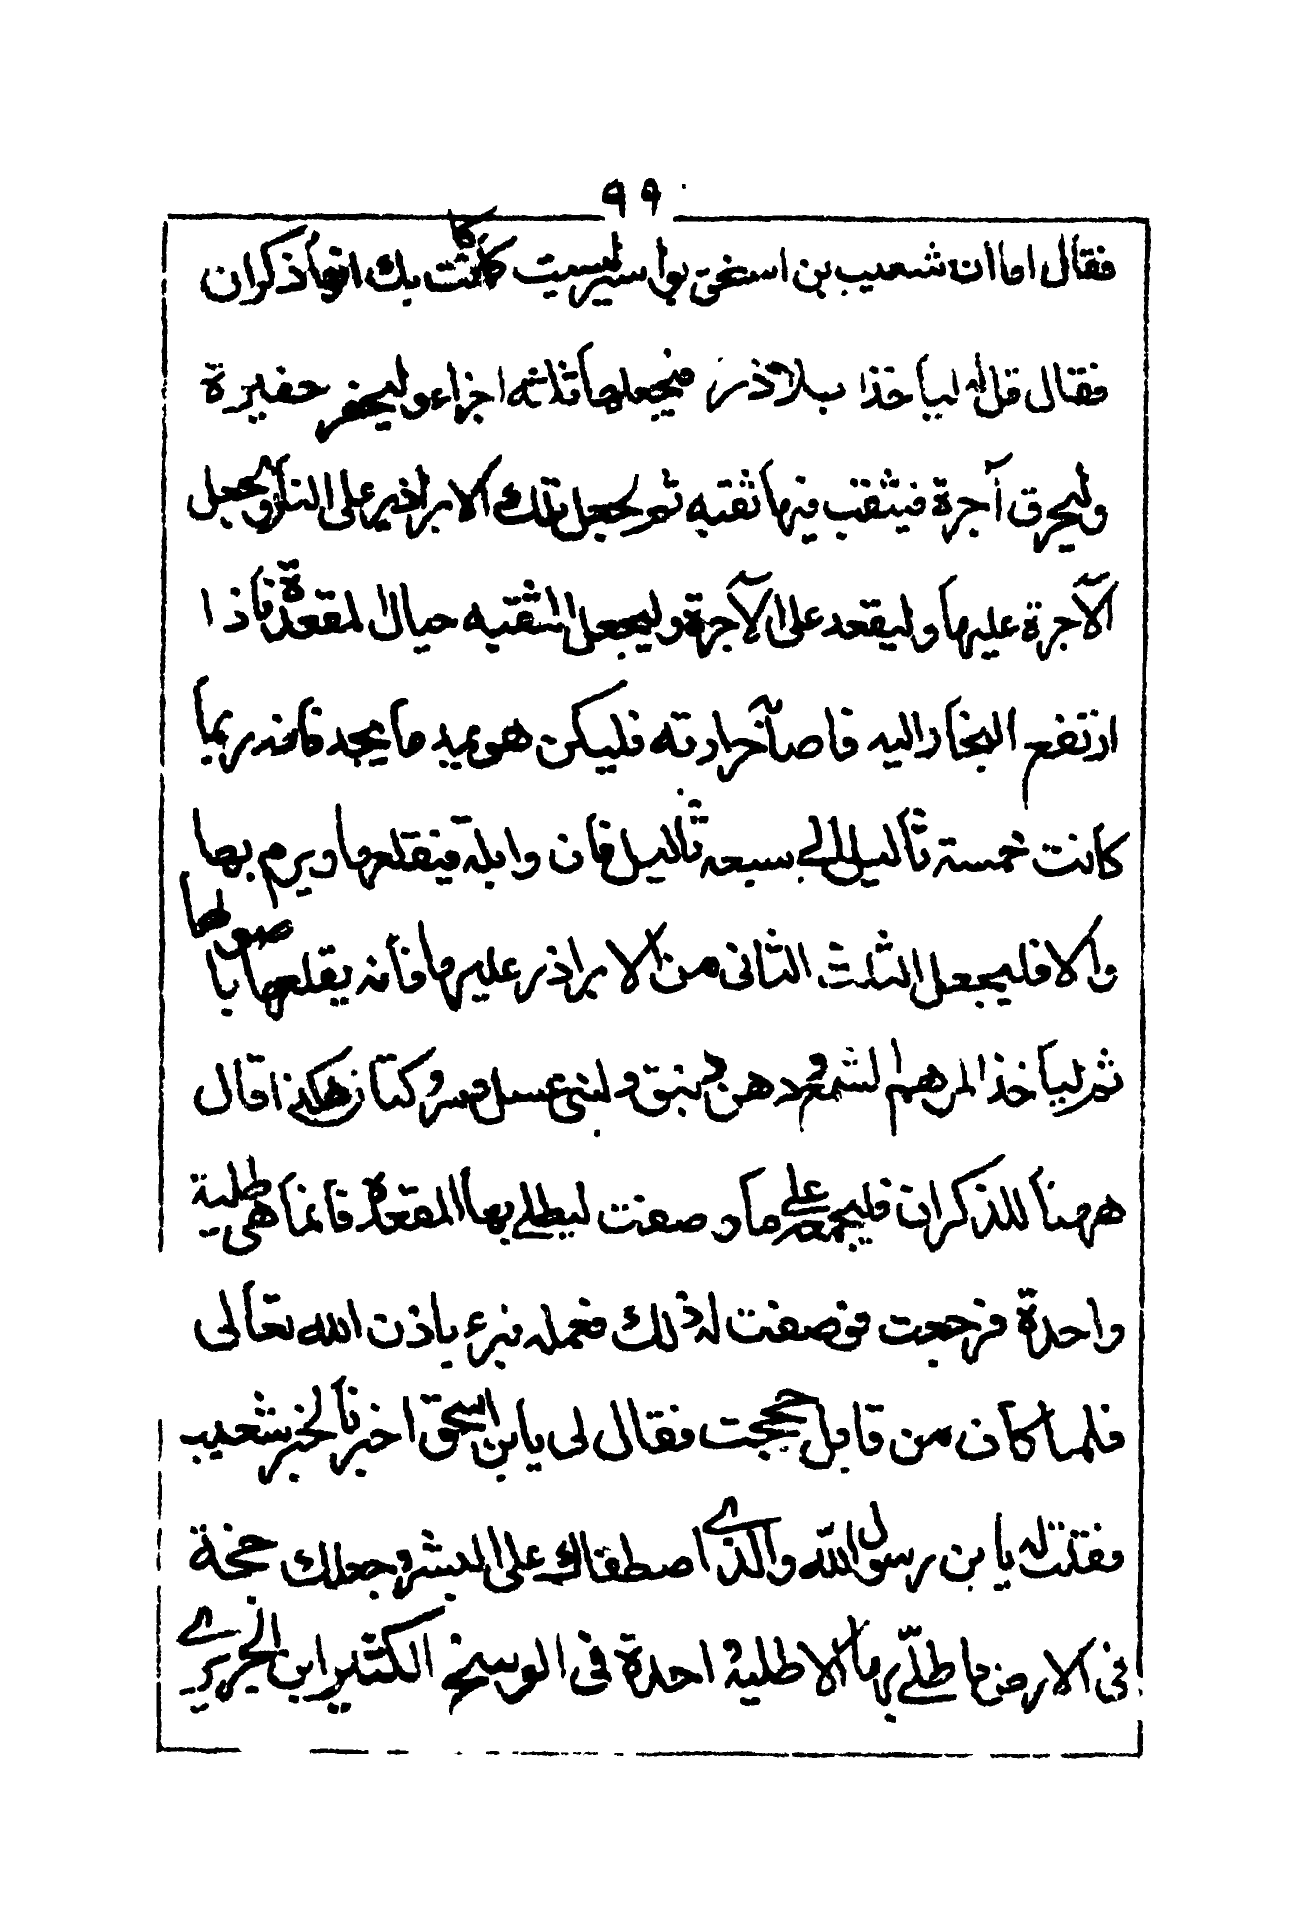 ٩٩
فقال اما ان شعيب بن اسحق بواسير ليست كانت بك انها ذكران
فقال قل له لياخذ بلاذر فيجعلها ثلاثه اجزاء وليحفر حفيرة
وليحرق آجرة فيثقب فيها ثقبه ثم يجعل تلك الابراذير على النار ويجعل
الآجرة عليها وليقعد على الآجرة وليجعل الثقبه حيال المقعدة فاذا
ارتفع البخار اليه فاصاب حرارته فليكن هو يعد ما يجد فانه ربما
كانت خمسة ثآليل الى سبعه ثاليل فان وابلة فيقلعها ويرم بها
والا فليجعل الثلث الثانى من الابراذر عليها فأنه يقلعها با صولها
ثم لياخذ المرهم الشمع ودهن زنبق ولبنى عسل وسرو كتان هكذا قال
ههنا للذكران فليجمعه على ما وصفت ليطلى بها المقعدة فانما هى طلية
واحدة فرجعت فوصفت له ذلك فعمله فبرء باذن الله تعالى
فلما كان من قابل حججت فقال لى يا بن اسحق اخبرنا لخبر شعيب
فقلت له يا بن رسول الله والذى اصطفاك على البشر وجعلك حجة
فى الارض ما طلّى بها الا طلية احدة فى الوسيخ الكثير ابن الحريرى